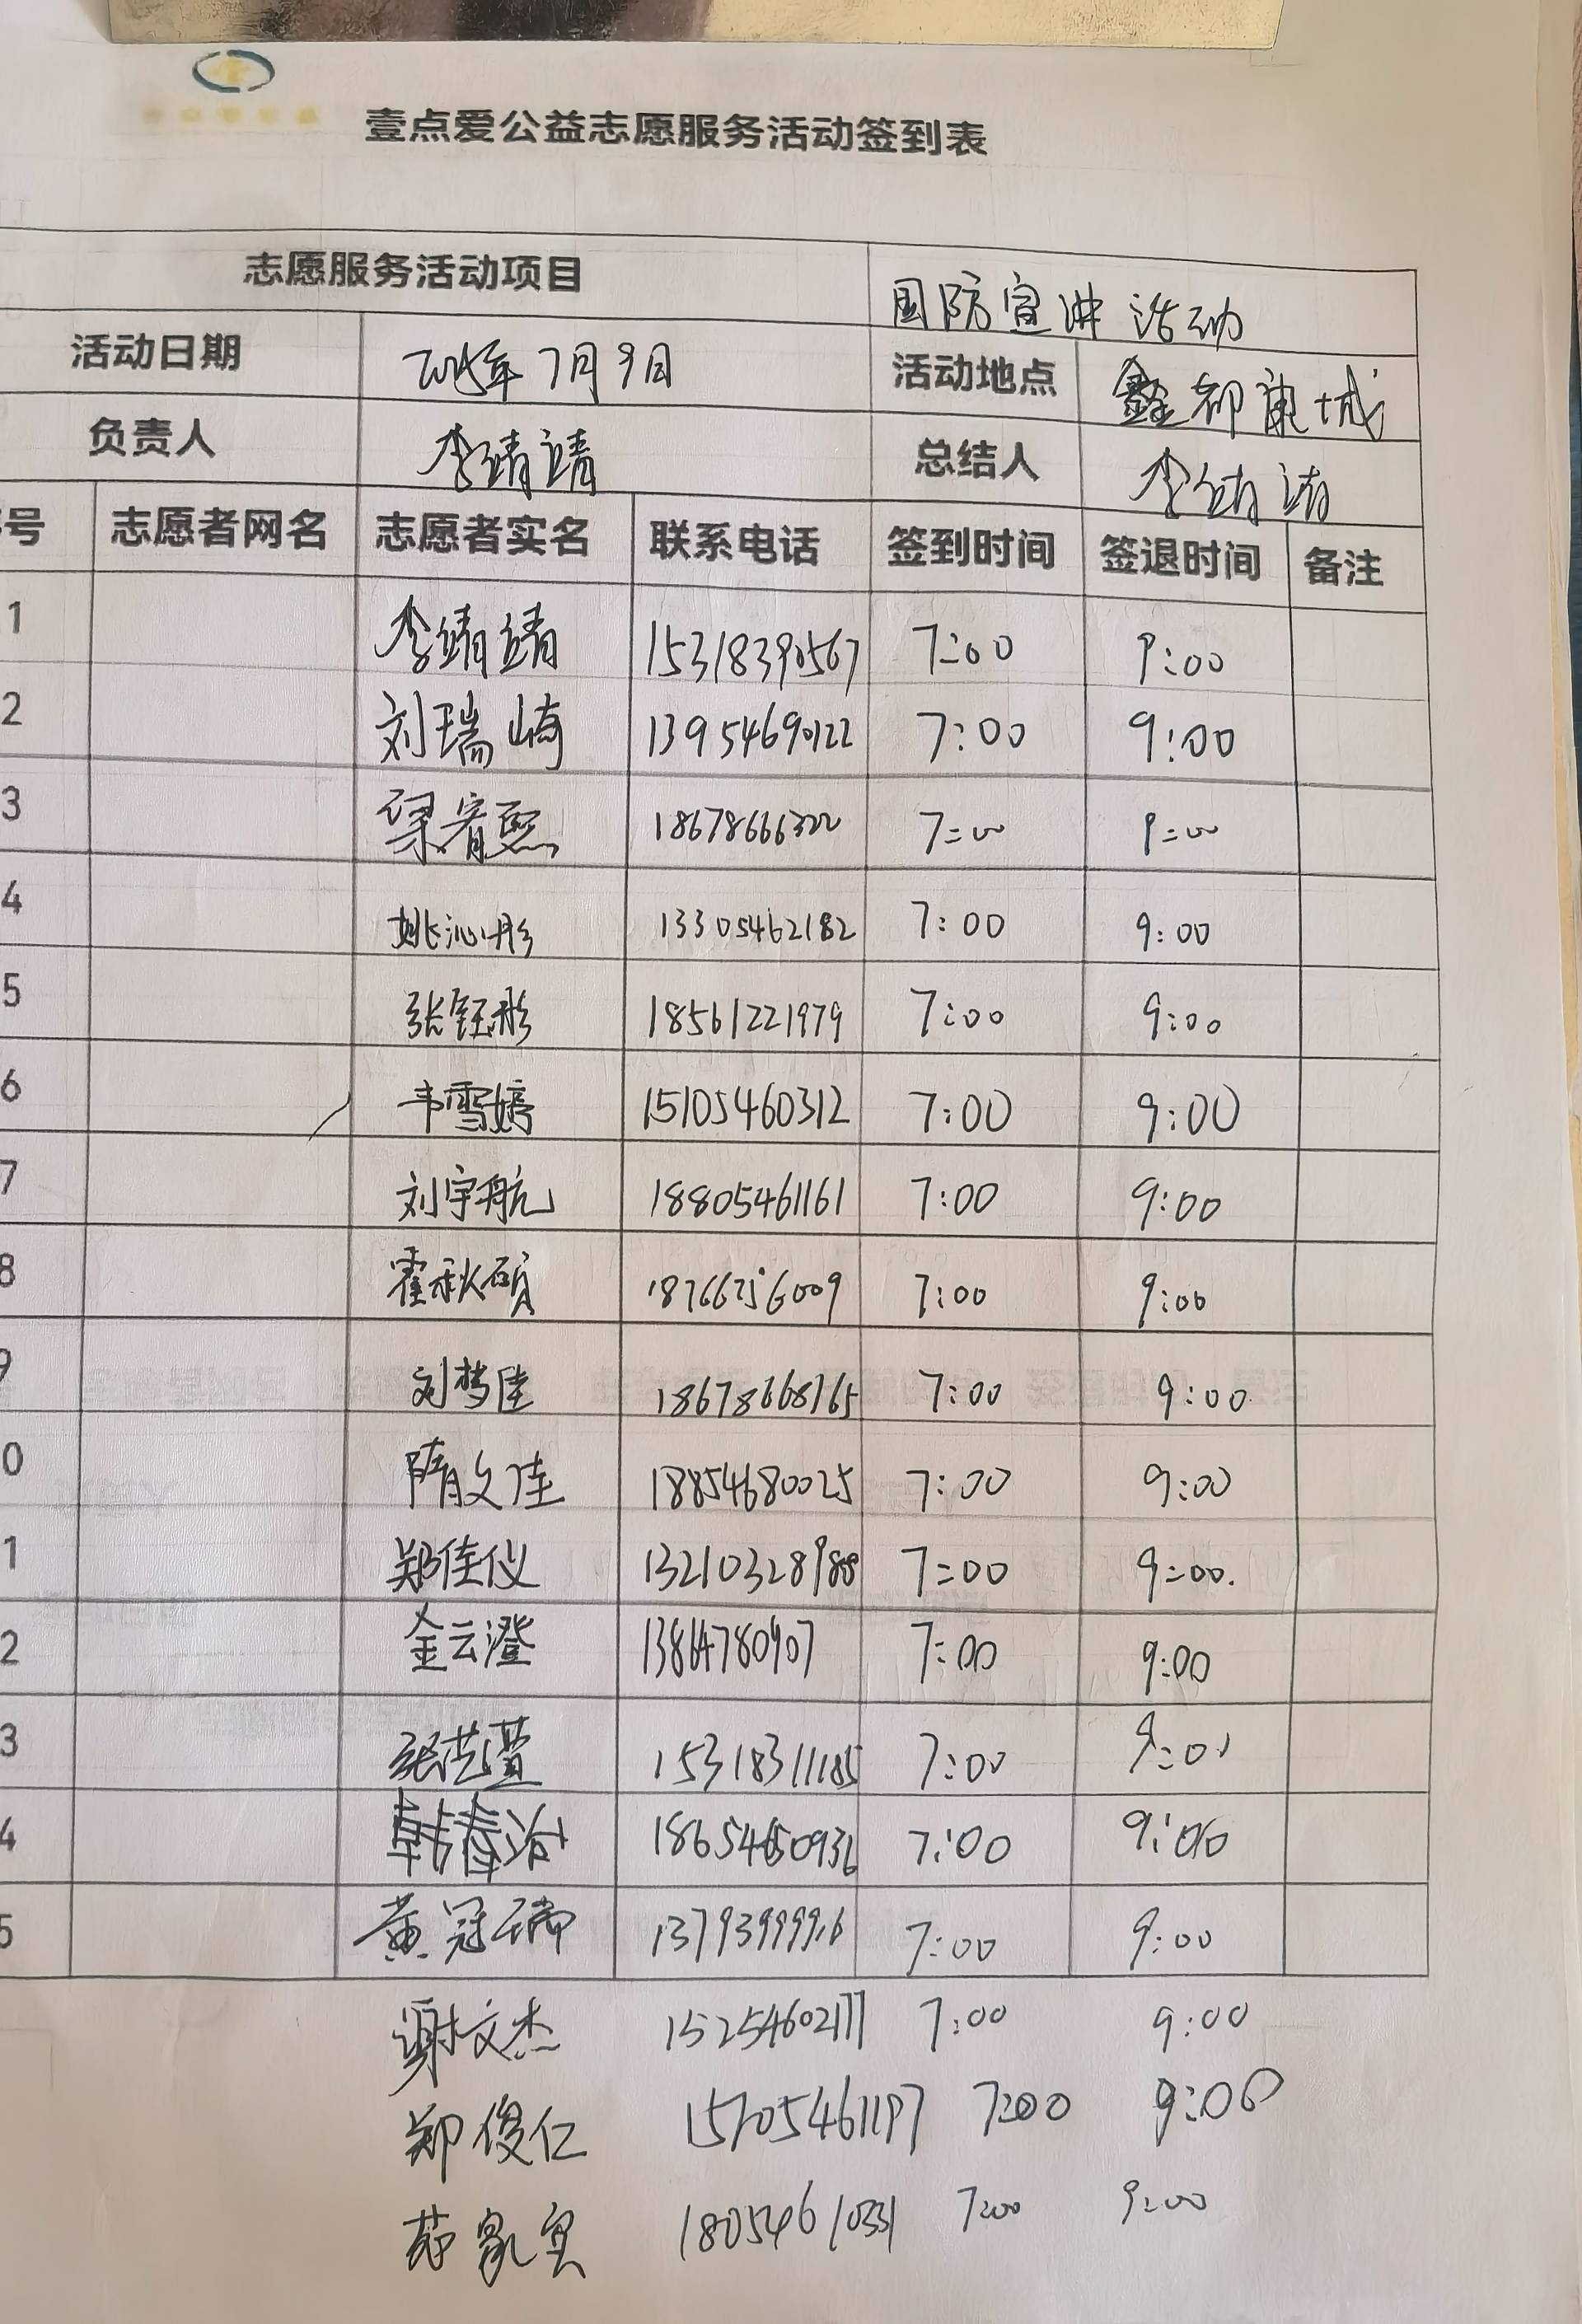 壹点爱公益志愿服务活动签到表
志愿服务活动项目 国防宣讲活动
活动日期 7月9日 活动地点 鑫都康城
负责人 李靖靖 总结人 李靖靖
号 志愿者网名 志愿者实名 联系电话 签到时间 签退时间 备注
1 李靖靖 15318390567 7:00 9:00
2 刘瑞崎 13954690122 7:00 9:00
3 梁宥熙 18678666322 7:00 9:00
4 姚沁彤 13305462182 7:00 9:00
5 张钰彤 18561221979 7:00 9:00
6 韦雪婷 15105460312 7:00 9:00
7 刘宇航 18805461161 7:00 9:00
8 霍秋硕 18766756009 7:00 9:00
9 刘梦佳 18678668765 7:00 9:00
0 隋文佳 18854680025 7:00 9:00
1 郑佳仪 13210328988 7:00 9:00.
2 金云澄 7:00 9:00
3 张艺萱 15318311185 7:00 9:00
4 韩春冶 18654650936 7:00 9:00
5 黄冠瑞 13793999916 7:00 9:00
谢文杰 15254602177 7:00 9:00
郑俊仁 15705461197 7:00 9:00
18054610331 7:00 9:00